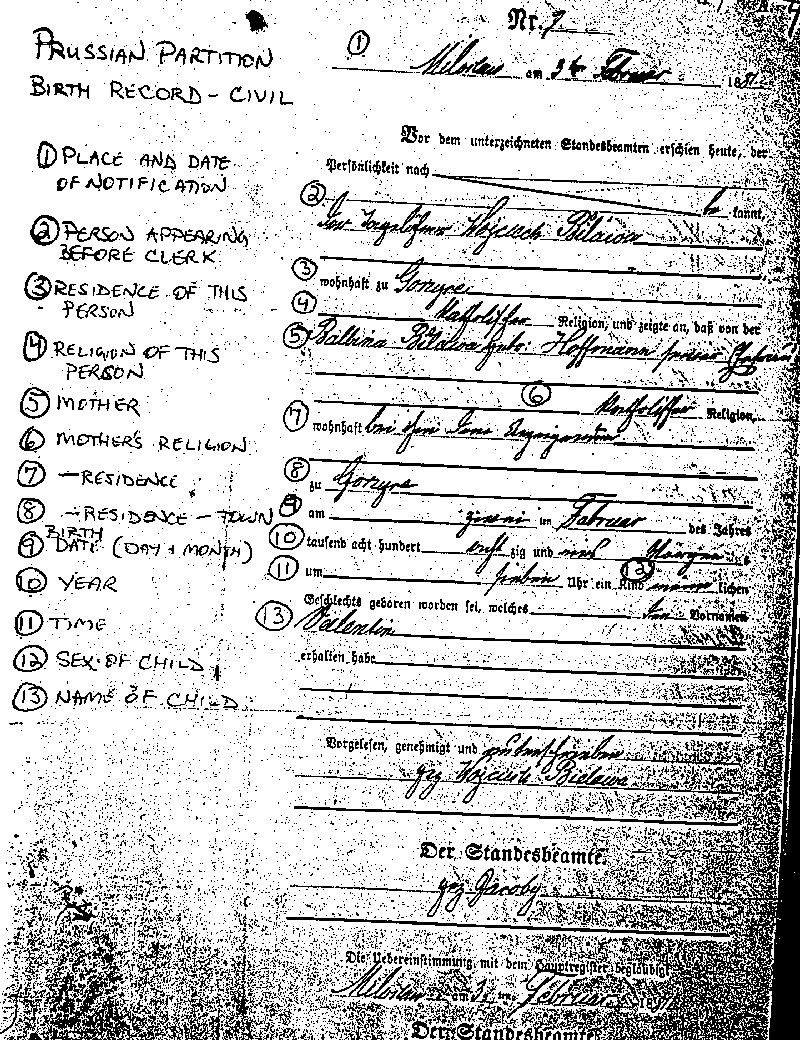 Nr. 7
PRUSSIAN PARTITION
BIRTH RECORD - CIVIL
① Miloslaw am 3ten Februar 18
① PLACE AND DATE OF NOTIFICATION
② PERSON APPEARING BEFORE CLERK
③ RESIDENCE OF THIS PERSON
④ RELIGION OF THIS PERSON
⑤ MOTHER
⑥ MOTHER'S RELIGION
⑦ -RESIDENCE
⑧ -RESIDENCE - TOWN
⑨ BIRTH DATE (DAY + MONTH)
⑩ YEAR
⑪ TIME
⑫ SEX OF CHILD
⑬ NAME OF CHILD
Vor dem unterzeichneten Standesbeamten erschien heute, der
Persönlichkeit nach
be kannt,
② der Tagelöhner Wojciech Bilawa
③ wohnhaft zu Gorzyce
④ katholischer Religion, und zeigte an, daß von der
⑤ Balbina Bilawa geb. Hoffmann seiner Ehefrau
⑥ katholischer Religion,
⑦ wohnhaft bei ihm
⑧ zu Gorzyce
⑨ am zweiten Februar des Jahres
⑩ tausend acht hundert acht zig und
⑪ um sieben Uhr ein Kind ⑫ männlichen
Geschlechts geboren worden sei, welches den Vornamen
⑬ Valentin
erhalten habe
Vorgelesen, genehmigt und unterschrieben
gez Wojciech Bielawa
Der Standesbeamte.
gez Jacoby
Die Uebereinstimmung mit dem Hauptregister beglaubigt
Miloslaw am 3ten Februar 18
Der Standesbeamte